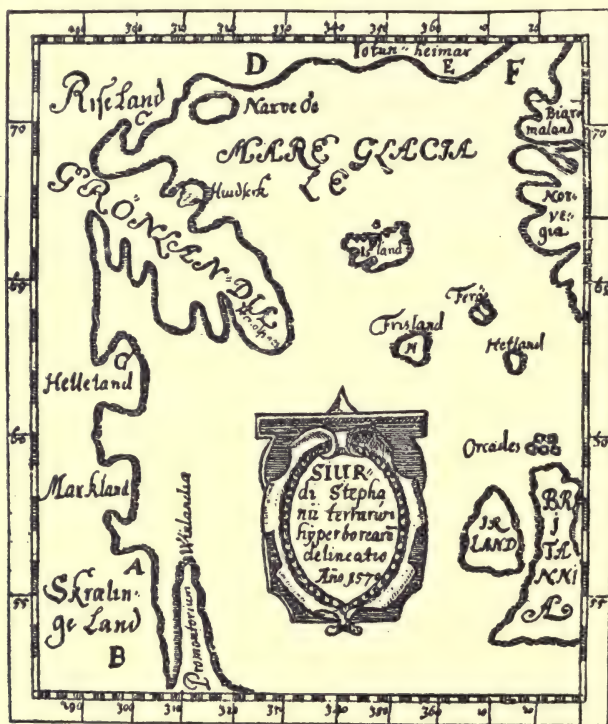 290 300 310 320 330 340 350 360 10 20
Jotun=heimar
D
E
F
Riseland
C
Narve Oe
Biar
maland
70
70
MARE GLACIA
LE
GRÖNLAN=DIA
Huidserk
Nor
ve=
gia
Island
65
65
Ferö
Frisland
H
Hetland
G
Helleland
60
60
Orcades
Markland
SIUR=
di Stepha
nii terrarum
hyperborearū
delineatio
Año 1570
IR
LAND
BR
i
TA
NNi
A
A
Promontorium Winlandiæ
Skralin=
ge Land
55
55
B
290 300 310 320 330 340 350 360 10 20